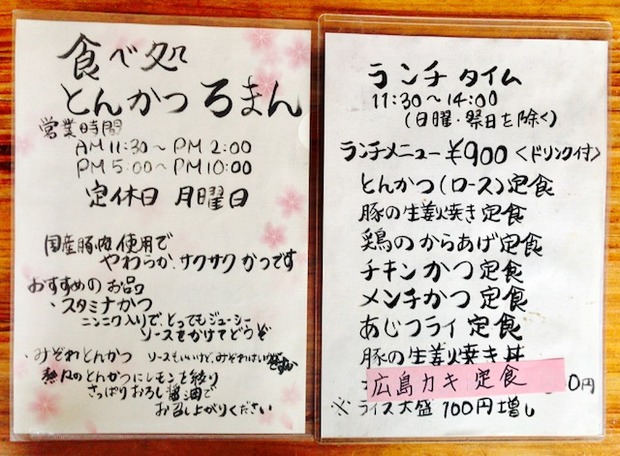 食べ処
とんかつ ろまん
営業時間
AM 11:30 ~ PM 2:00
PM 5:00 ~ PM 10:00
定休日 月曜日
国産豚肉使用で
やわらか、サクサク かつです
おすすめの お品
・スタミナかつ
ニンニク入りで、とってもジューシー
ソースをかけてどうぞ
・みぞれとんかつ ソースもいいけど、みぞれは
熱々のとんかつにレモンを絞り
さっぱりおろし醤油で
お召し上がりください
ランチ タイム
11:30 ~ 14:00
(日曜・祭日を除く)
ランチメニュー ¥900 <ドリンク付>
とんかつ (ロース) 定食
豚の生姜焼き 定食
鶏の からあげ 定食
チキン かつ 定食
メンチかつ 定食
あじフライ 定食
豚の生姜焼き 丼
広島カキ 定食 0円
※ ライス大盛 100円増し